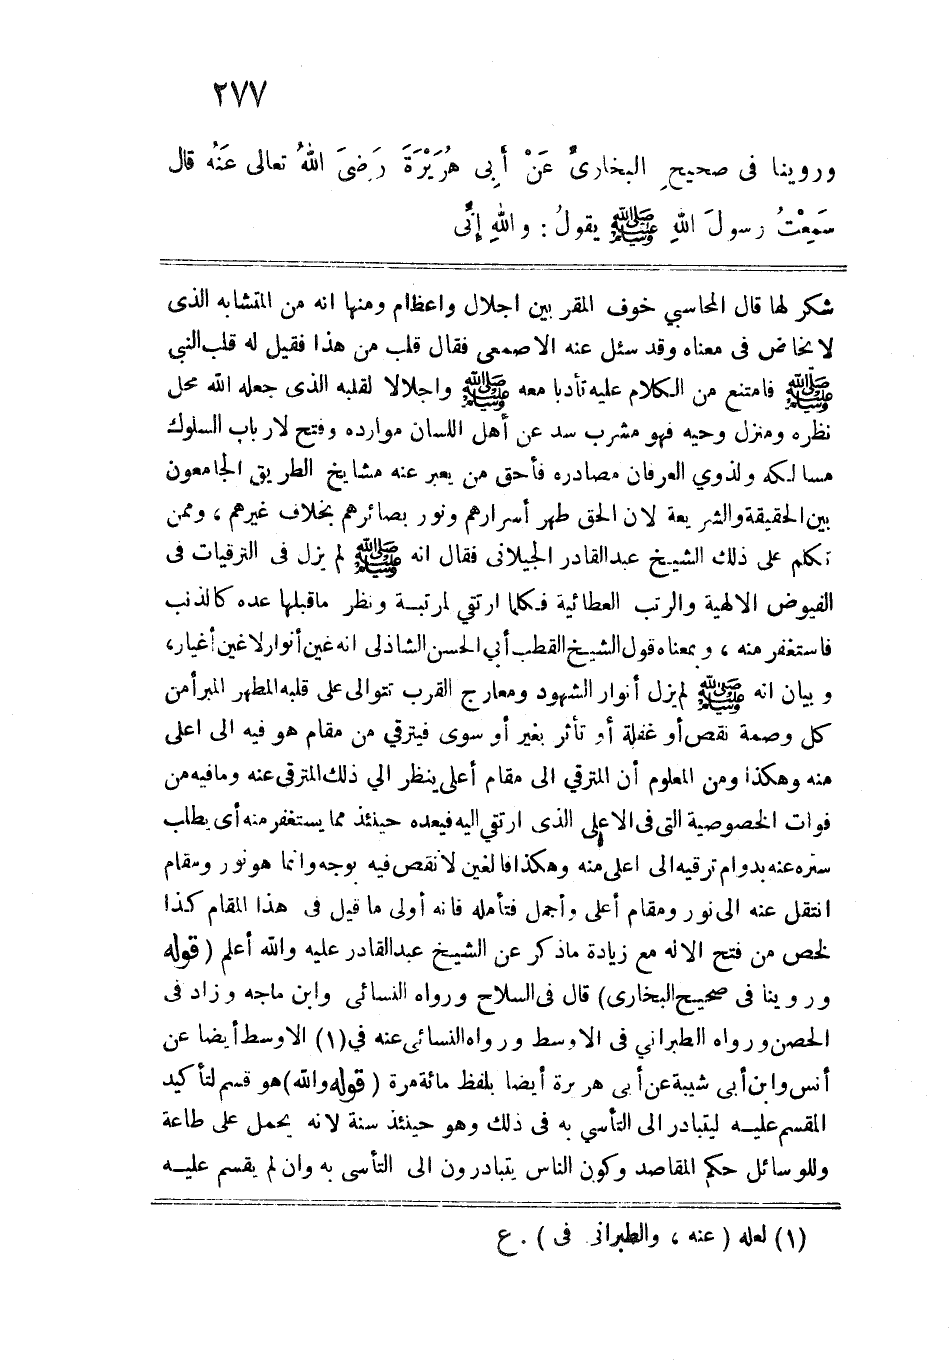 ٢٧٧
وروينا فى صحيحِ البخارىِّ عَنْ أَبِى هُرَيْرَةَ رَضِىَ اللهُ تعالى عَنْه قال
سَمِعْتُ رسولَ اللهِ ﷺ يقولُ : واللهِ إنِّى
شكر لها قال المحاسبي خوف المقر بين اجلال واعظام ومنها انه من المتشابه الذى
لا يخاض فى معناه وقد سئل عنه الاصمعى فقال قلب من هذا فقيل له قلب النبي
ﷺ فامتنع من الكلام عليه تأدبا معه ﷺ واجلالا لقلبه الذى جعله الله محل
نظره ومنزل وحيه فهو مشرب سد عن أهل اللسان موارده وفتح لار باب السلوك
مسالكه ولذوي العرفان مصادره فأحق من يعبر عنه مشايخ الطريق الجامعون
بين الحقيقة والشريعة لان الحق طهر أسرارهم ونور بصائرهم بخلاف غيرهم ، وممن
تكلم على ذلك الشيخ عبدالقادر الجيلانى فقال انه ﷺ لم يزل فى الترقيات فى
الفيوض الالهية والرتب العطائية فكلما ارتقي لمرتبة ونظر ماقبلها عده كالذنب
فاستغفر منه ، وبمعناه قول الشيخ القطب أبي الحسن الشاذلى انه غين أنوار لا غين أغيار ،
وبيان انه ﷺ لم يزل أنوار الشهود ومعارج القرب تتوالى على قلبه المطهر المبرأ من
كل وصمة نقص أو غفلة أو تأثر بغير أو سوى فيترقي من مقام هو فيه الى اعلى
منه وهكذا ومن المعلوم أن المترقي الى مقام أعلى ينظر الي ذلك المترقى عنه ومافيه من
فوات الخصوصية التى فى الاعلى الذى ارتقي اليه فيعده حينئذ مما يستغفر منه أى يطلب
ستره عنه بدوام ترقيه الى اعلى منه وهكذا فالغين لا نقص فيه بوجه وانما هو نور ومقام
انتقل عنه الى نور ومقام أعلى وأجمل فتأمله فانه أولى ما قيل فى هذا المقام كذا
لخص من فتح الاله مع زيادة ماذكر عن الشيخ عبدالقادر عليه والله أعلم (قوله
وروينا فى صحيح البخارى) قال فى السلاح ورواه النسائى وابن ماجه وزاد فى
الحصن ورواه الطبراني فى الاوسط ورواه النسائى عنه في (١) الاوسط أيضا عن
أنس وابن أبى شيبة عن أبى هريرة أيضا بلفظ مائة مرة (قوله والله) هو قسم لتأكيد
المقسم عليه ليتبادر الى التأسي به فى ذلك وهو حينئذ سنة لانه يحمل على طاعة
وللوسائل حكم المقاصد وكون الناس يتبادرون الى التأسى به وان لم يقسم عليه
(١) لعله ( عنه ، والطبرانى فى ) . ع